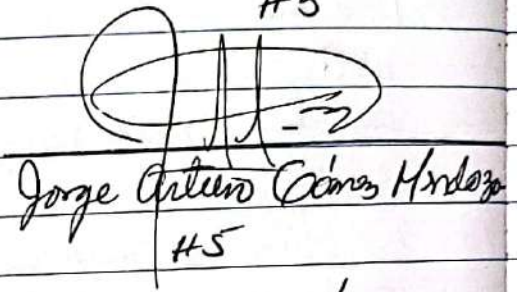 #5
Jorge Arturo Gómez Mendoza
#5